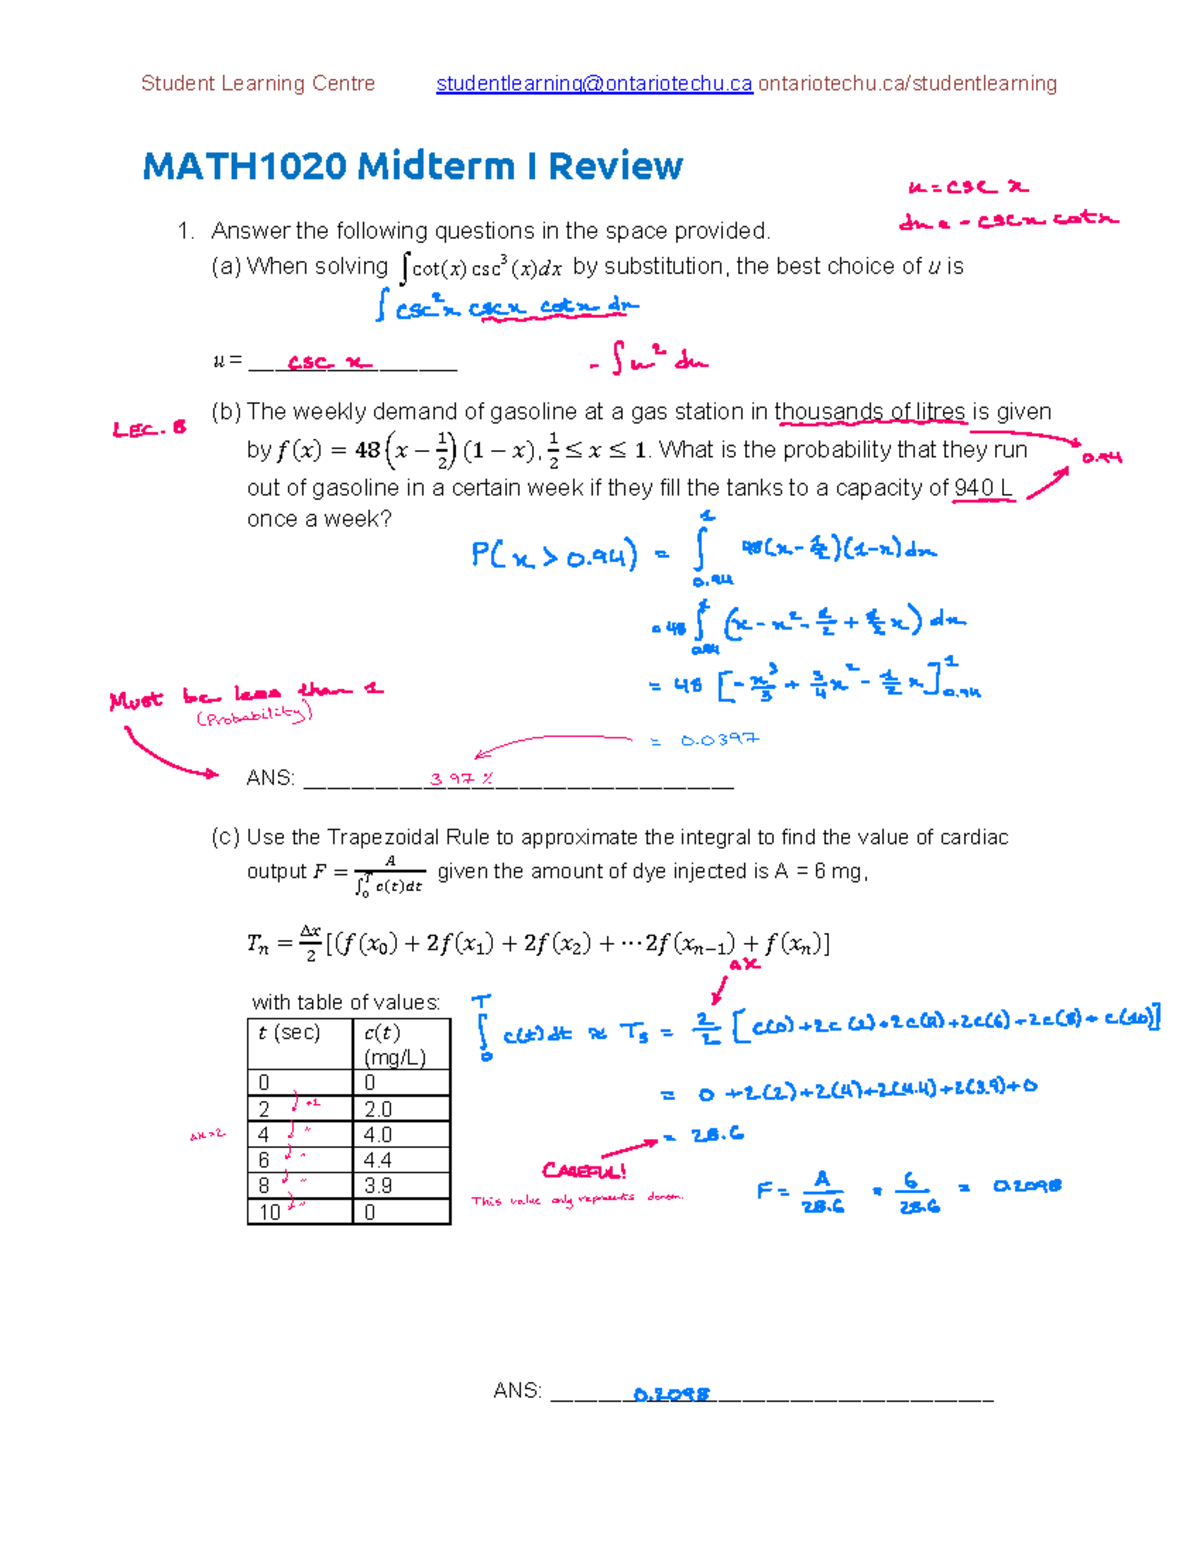 Student Learning Centre studentlearning@ontariotechu.ca ontariotechu.ca/studentlearning
MATH1020 Midterm I Review
u = csc x
du = - cscx cotx
1. Answer the following questions in the space provided.
(a) When solving ∫cot(x) csc³(x)dx by substitution, the best choice of u is
∫ csc²x cscx cotx dx
u = ________ csc x ________
- ∫ u² du
(b) The weekly demand of gasoline at a gas station in thousands of litres is given
LEC. 8
by f(x) = 48(x − 1/2)(1 − x), 1/2 ≤ x ≤ 1. What is the probability that they run
0.94
out of gasoline in a certain week if they fill the tanks to a capacity of 940 L
once a week?
P(x > 0.94) = ∫_{0.94}^{1} 48(x - 1/2)(1-x)dx
= 48 ∫_{0.94}^{1} (x - x² - 1/2 + 1/2 x) dx
= 48 [-x³/3 + 3/4 x² - 1/2 x]_{0.94}^{1}
Must be less than 1
(Probability)
= 0.0397
ANS: ________ 3.97 % ________
(c) Use the Trapezoidal Rule to approximate the integral to find the value of cardiac
output F = A / ∫_0^T c(t)dt given the amount of dye injected is A = 6 mg,
T_n = Δx/2 [(f(x_0) + 2f(x_1) + 2f(x_2) + ⋯ 2f(x_{n−1}) + f(x_n)]
Δx
with table of values:
t (sec) c(t) (mg/L)
0 0
2 2.0
4 4.0
6 4.4
8 3.9
10 0
Δx=2
+2
"
"
"
"
∫_0^T c(t)dt ≈ T_5 = 2/2 [c(0)+2c(2)+2c(4)+2c(6)+2c(8)+c(10)]
= 0 +2(2)+2(4)+2(4.4)+2(3.9)+0
= 28.6
CAREFUL!
This value only represents denom.
F = A/28.6 = 6/28.6 = 0.2098
ANS: ________ 0.2098 ________